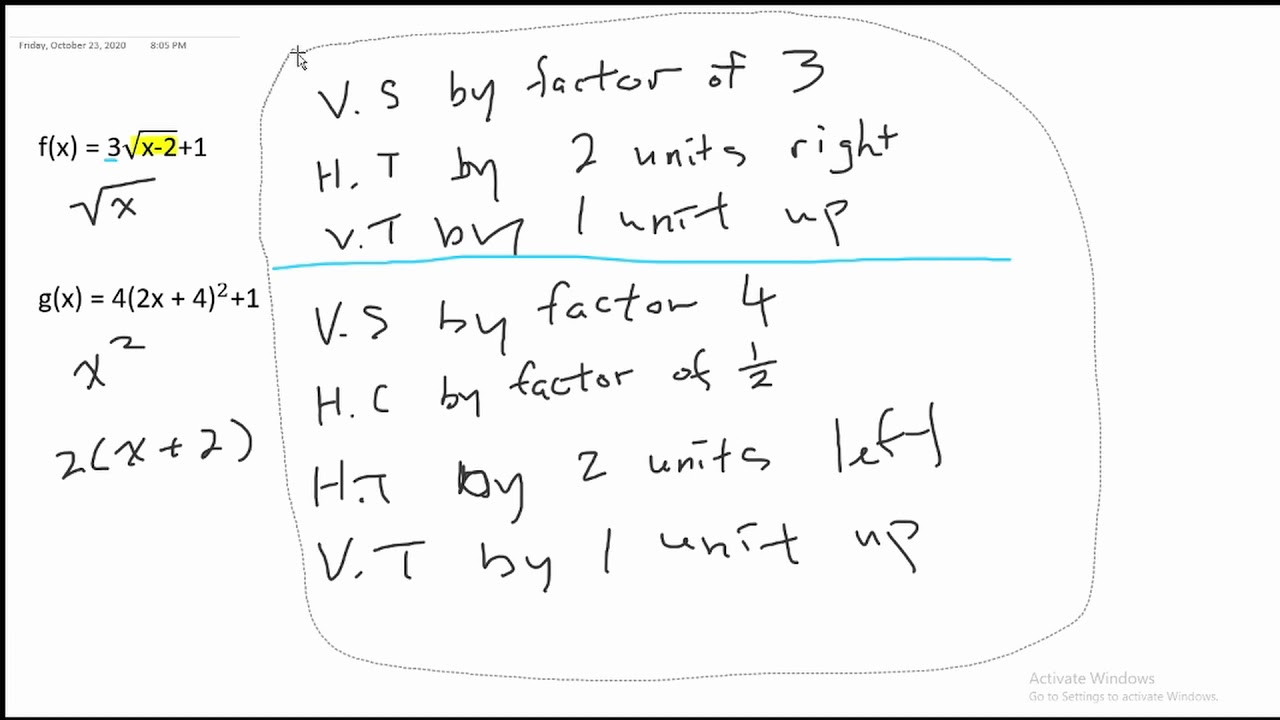 Friday, October 23, 2020 8:05 PM
f(x) = 3√x-2+1
√x
g(x) = 4(2x + 4)²+1
x²
2(x+2)
V.S by factor of 3
H.T by 2 units right
V.T by 1 unit up
V.S by factor 4
H.C by factor of 1/2
H.T by 2 units left
V.T by 1 unit up
Activate Windows
Go to Settings to activate Windows.